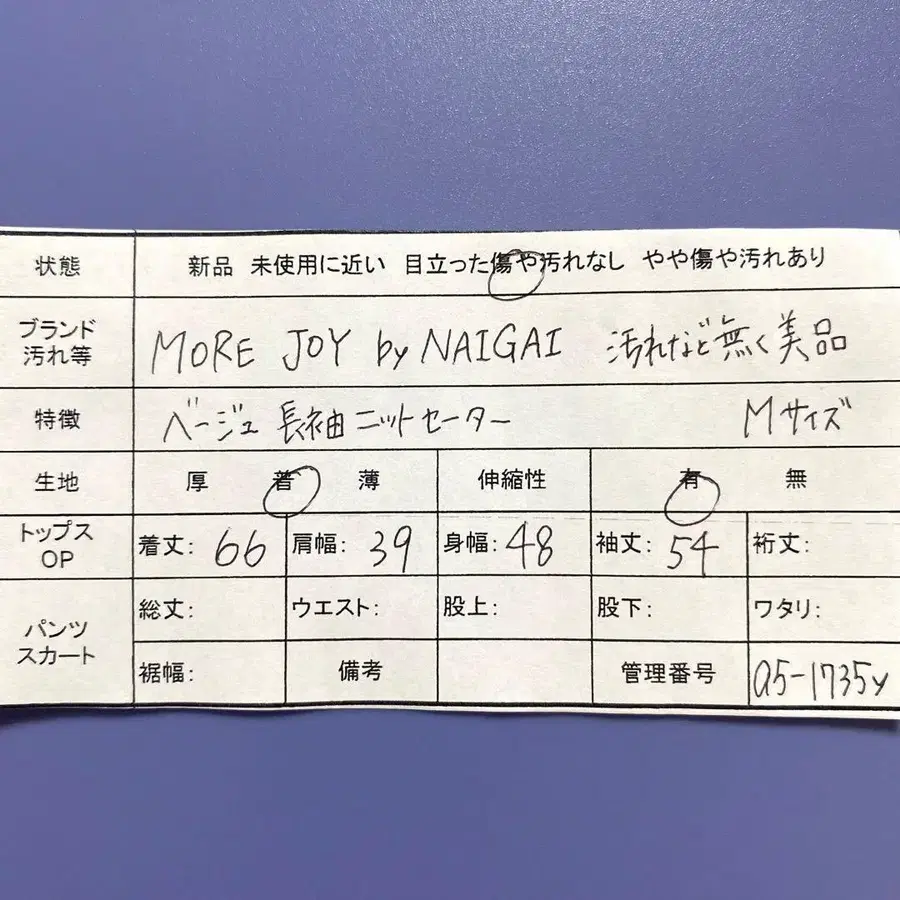 状態 新品 未使用に近い 目立った傷や汚れなし やや傷や汚れあり
ブランド
汚れ等 MORE JOY by NAIGAI 汚れなど無く美品
特徴 ベージュ 長袖ニットセーター Mサイズ
生地 厚 普 薄 伸縮性 有 無
トップス
OP 着丈: 66 肩幅: 39 身幅: 48 袖丈: 54 裄丈:
パンツ
スカート 総丈: ウエスト: 股上: 股下: ワタリ:
裾幅: 備考 管理番号 a5-1735y